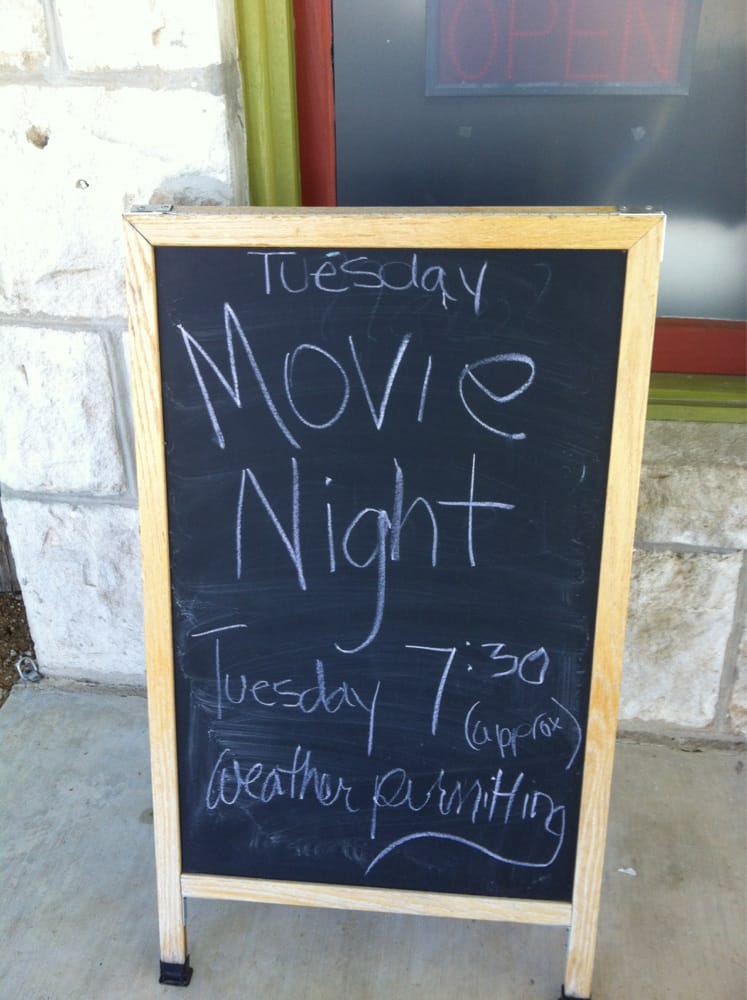 OPEN
Tuesday
Movie
Night
Tuesday 7:30
(approx)
weather permitting